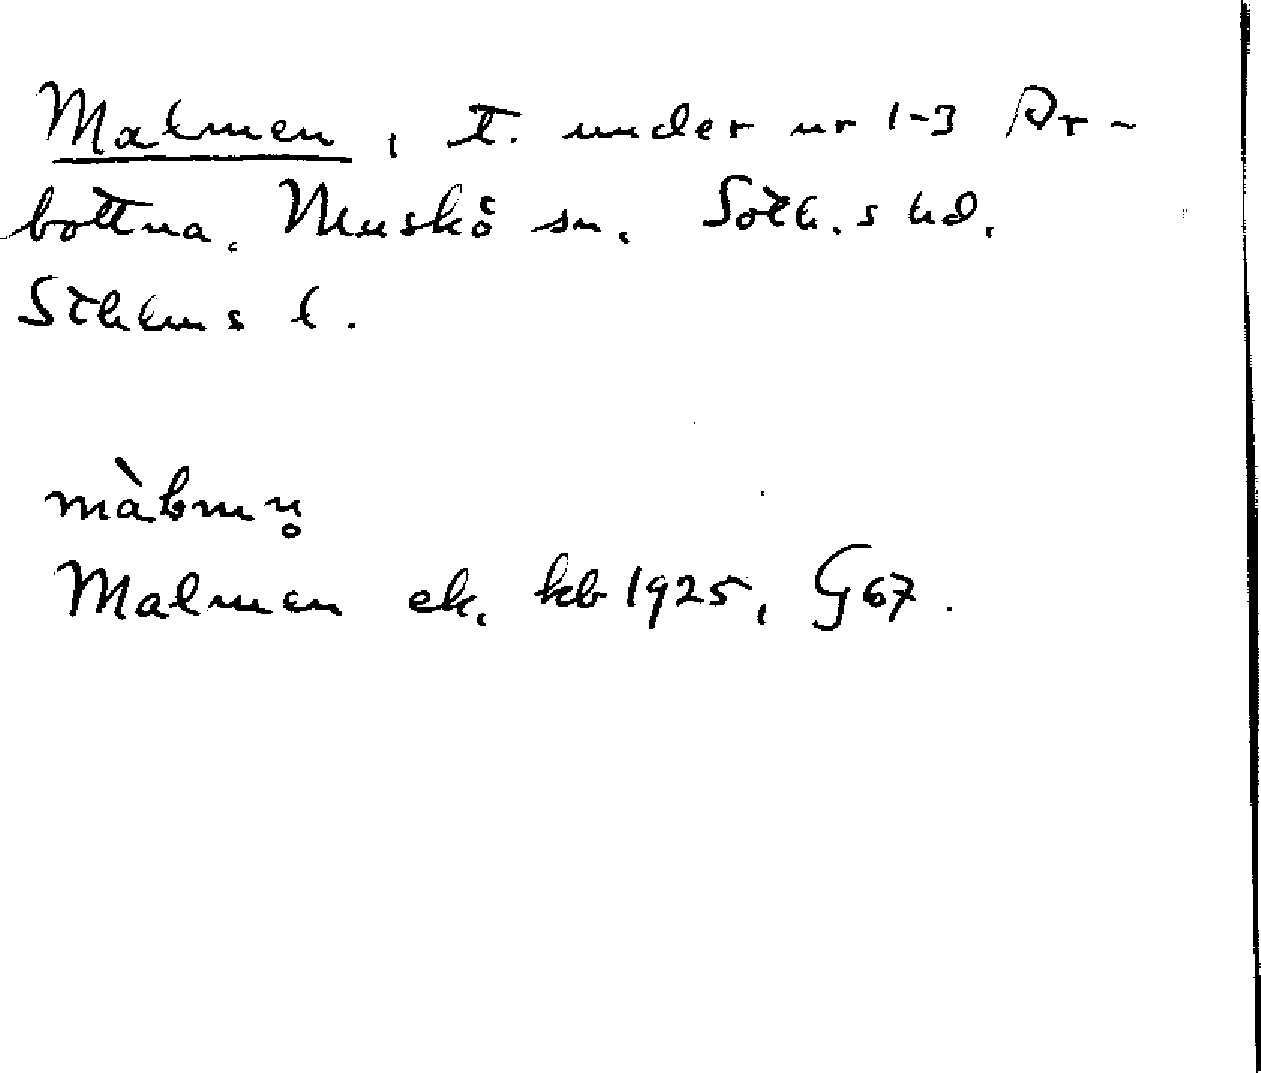 Malmen, t. under nr 1-3 Ar-
bottna, Muskö sn, Soth.s hd,
Sthlms l.
màlmn̥
Malmen ek. kb 1925, G67.